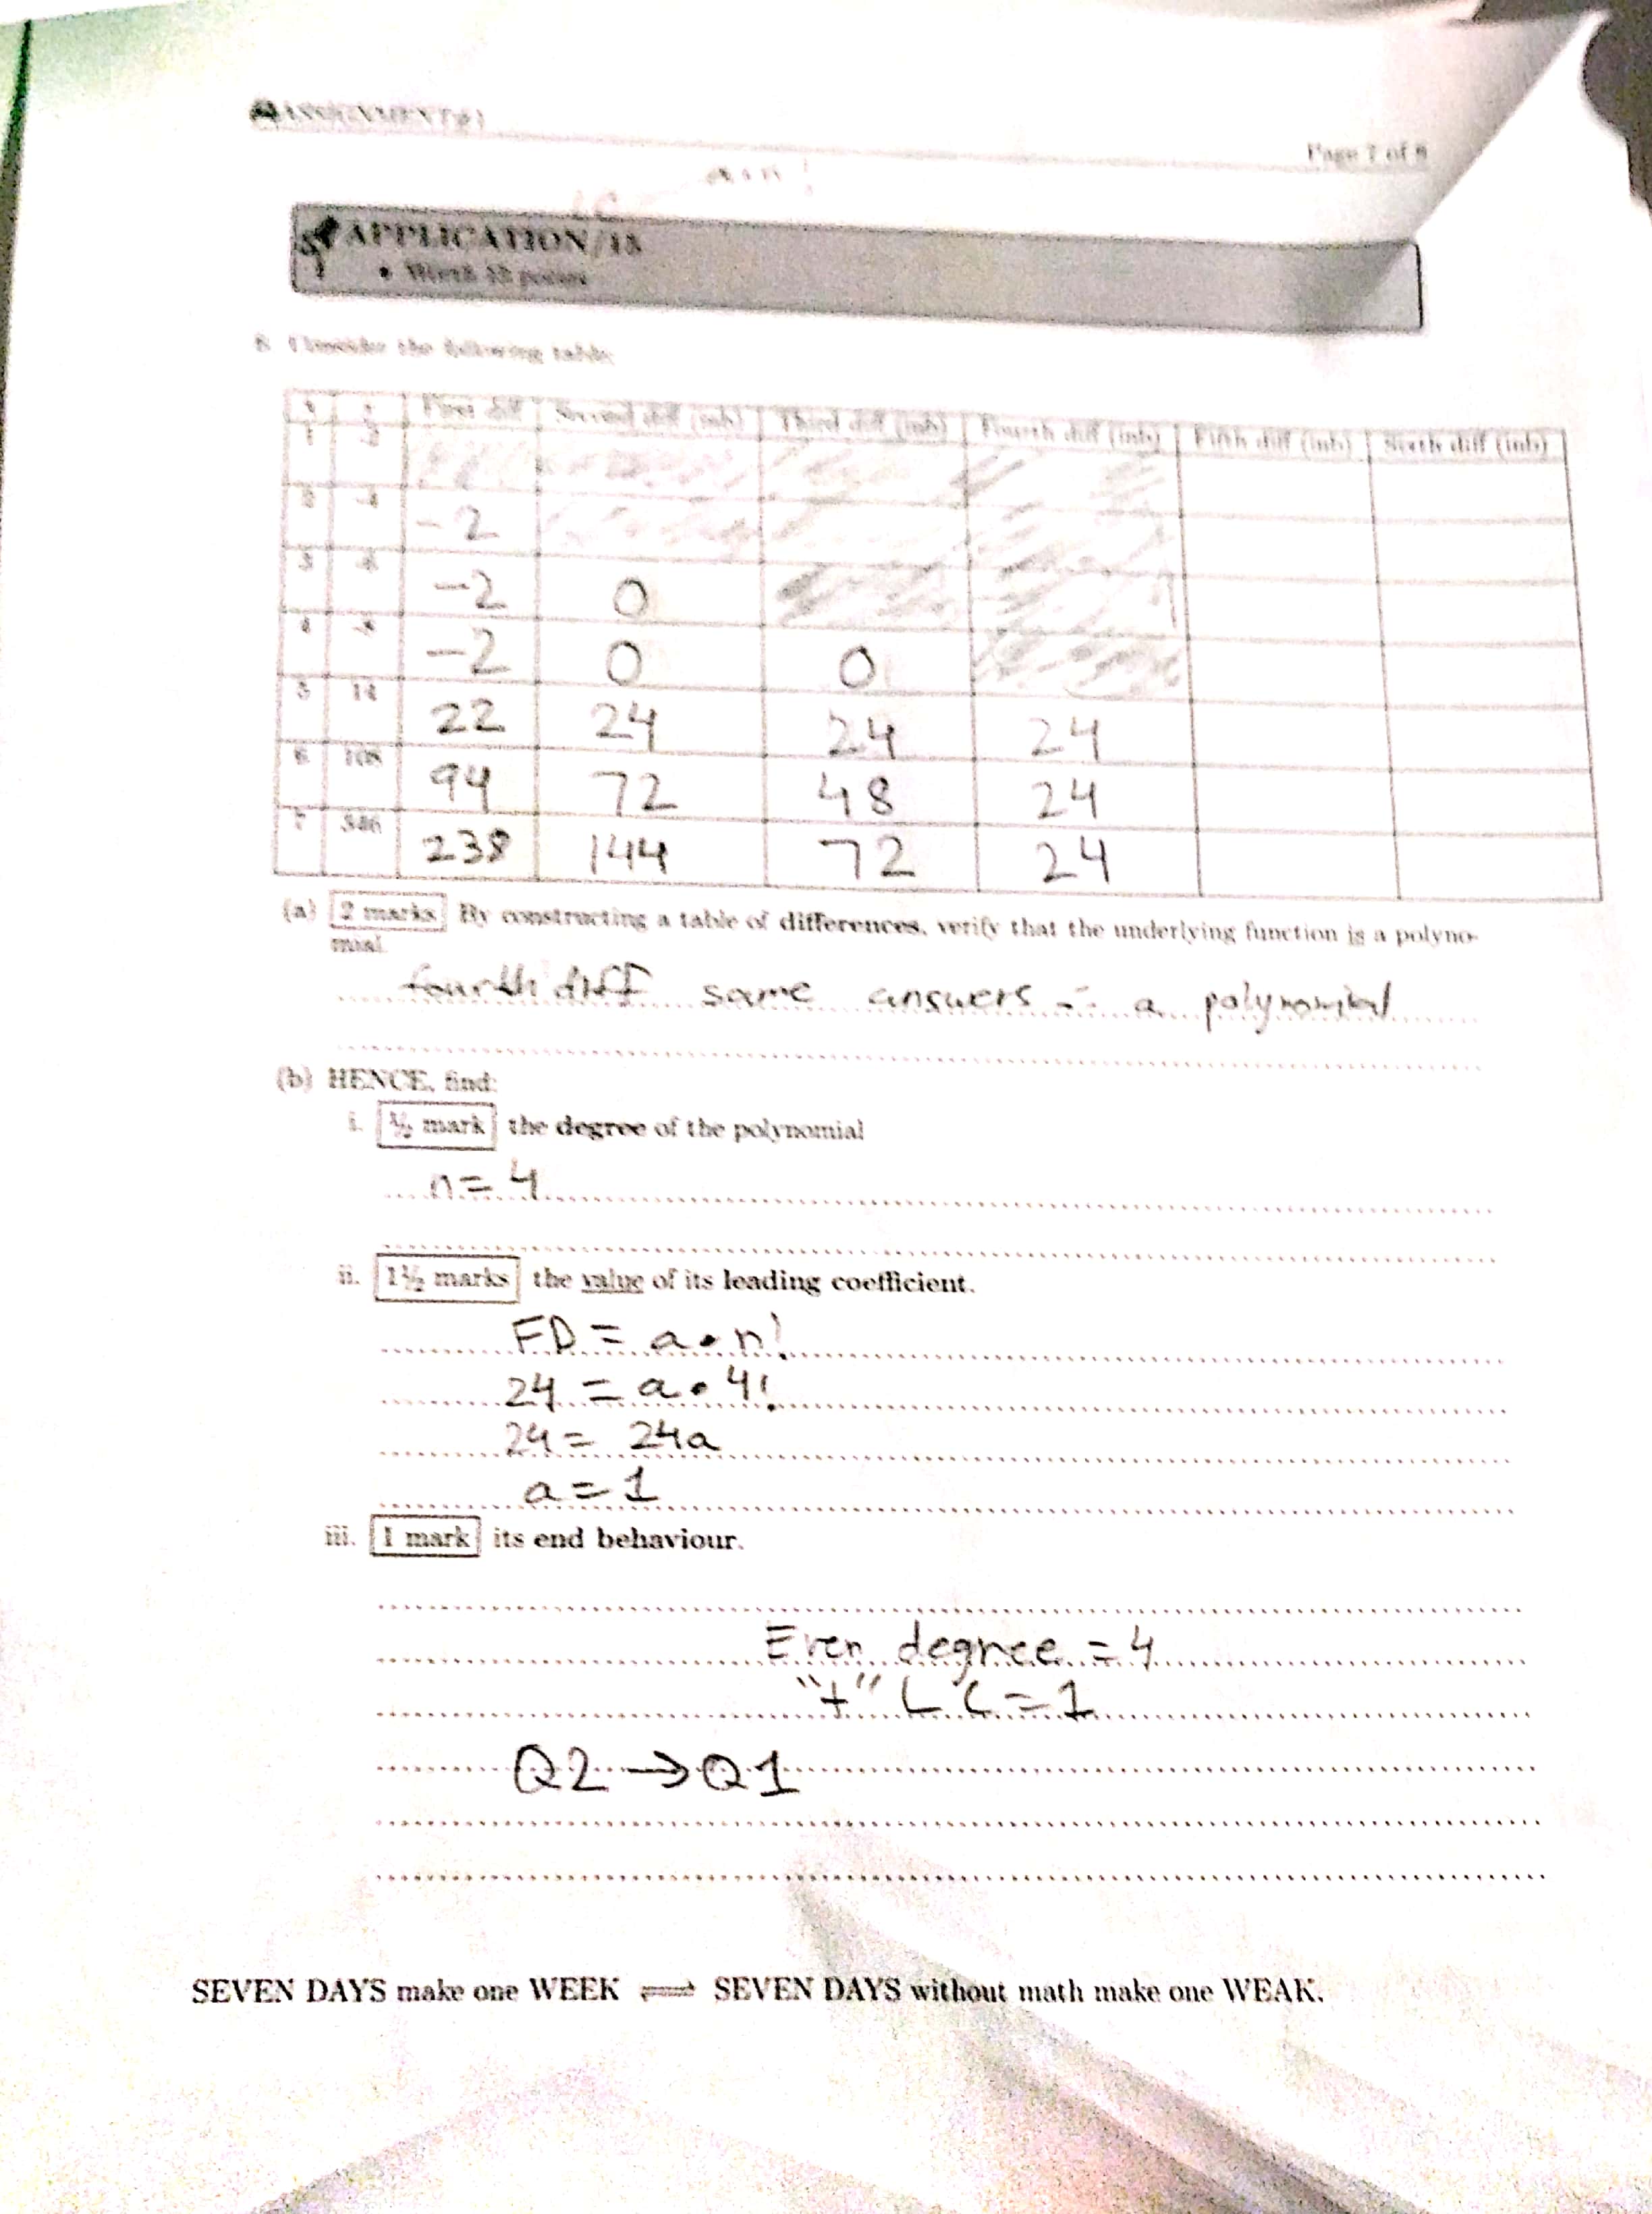 ASSIGNMENT#1
Page 7 of 8
APPLICATION/18
• Worth 18 points
Consider the following table:
First diff Second diff (imb) Third diff (imb) Fourth diff (imb) Fifth diff (imb) Sixth diff (imb)
1 -2
2 -4 -2
3 -6 -2 0
4 -8 -2 0 0
5 14 22 24 24 24
6 108 94 72 48 24
7 346 238 144 72 24
(a) 2 marks By constructing a table of differences, verify that the underlying function is a polyno-
mial.
fourth diff same answers ∴ a polynomial
(b) HENCE, find:
i. ½ mark the degree of the polynomial
n = 4
ii. 1½ marks the value of its leading coefficient.
FD = a • n!
24 = a • 4!
24 = 24a
a = 1
iii. 1 mark its end behaviour.
Even degree = 4
"+" LC = 1
Q2 → Q1
SEVEN DAYS make one WEEK ⇌ SEVEN DAYS without math make one WEAK.